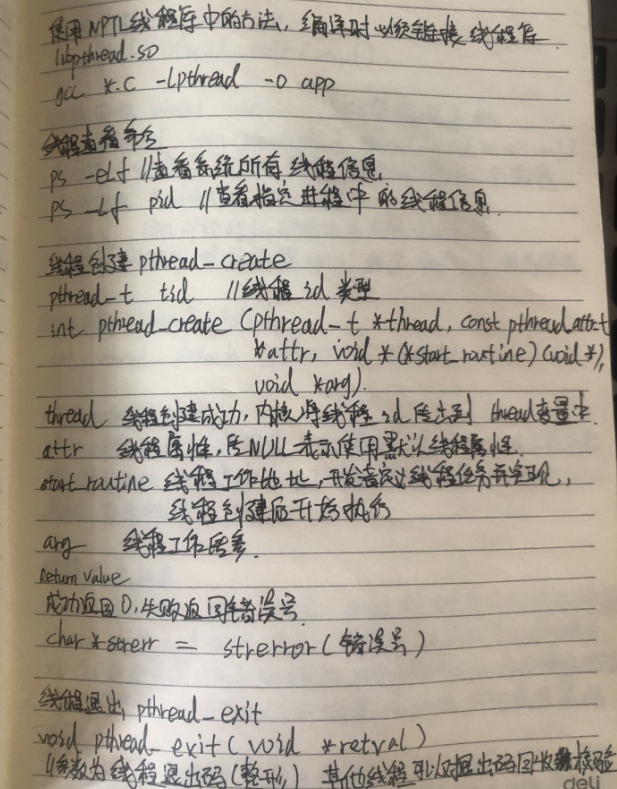 使用NPTL线程库中的方法, 编译时必须链接线程库
libpthread.so
gcc *.c -lpthread -o app
线程查看命令
ps -eLf //查看系统所有线程信息
ps -Lf pid //查看指定进程中的线程信息.
线程创建 pthread_create
pthread_t tid //线程id类型
int pthread_create (pthread_t *thread, const pthread_attr_t
*attr, void *(*start_routine)(void*),
void *arg).
thread 线程创建成功, 内核将线程id传出到 thread变量中.
attr 线程属性, 传NULL表示使用默认线程属性.
start_routine 线程工作地址, 开发者定义线程任务并实现,
线程创建后开始执行
arg 线程工作传参.
Return value
成功返回0, 失败返回错误号
char *strerr = strerror(错误号)
线程退出, pthread_exit
void pthread_exit( void *retval)
//参数为线程退出码(整形) 其他线程可以对退出码回收 校验
deli